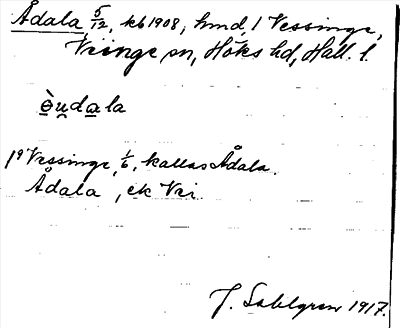 Ådala, 5/12, kb 1908, hmd, 1 Vessinge,
Veinge sn, Höks hd, Hall. l.
ò̤ṳda̲la
1⁹ Vessinge, 1/6, kallas Ådala.
Ådala, ek Vei
J. Sahlgren 1917.